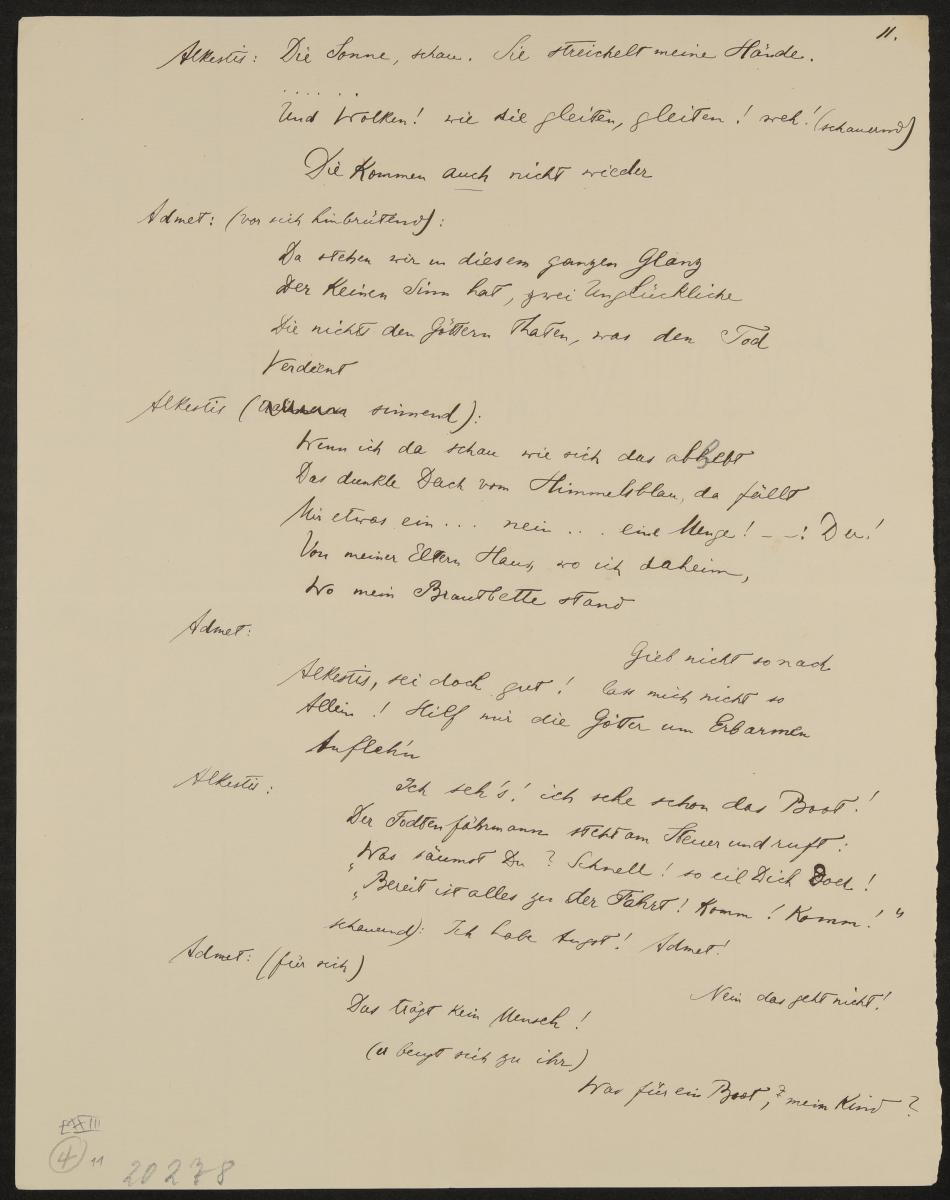 11.
Alkestis: Die Sonne, schau. Sie streichelt meine Hände.
. . . . . .
Und Wolken! wie sie gleiten, gleiten! weh! (schauernd)
Die Kommen auch nicht wieder
Admet: (vor sich hinbrütend):
Da stehen wir in diesem ganzen Glanz
Der Keinen Sinn hat, zwei Unglückliche
Die nichts den Göttern thaten, was den Tod
Verdient
Alkestis ( sinnend):
Wenn ich da schau wie sich das abhebt
Das dunkle Dach vom Himmelsblau, da fällt
Mir etwas ein... nein... eine Menge! – –: Du!
Von meiner Eltern Haus, wo ich daheim,
Wo mein Brautbette stand
Admet:
Gieb nicht so nach
Alkestis, sei doch gut! lass mich nicht so
Allein! Hilf mir die Götter um Erbarmen
Anfleh'n
Alkestis:
Ich seh's! ich sehe schon das Boot!
Der Todtenfährmann steht am Steuer und ruft:
"Was säumst Du? Schnell! so eil Dich Doch!
"Bereit ist alles zu der Fahrt! Komm! Komm!"
schauernd): Ich habe Angst! Admet!
Admet: (für sich)
Nein das geht nicht!
Das trägt Kein Mensch!
(er beugt sich zu ihr)
Was für ein Boot,? mein Kind?
4 11
20278